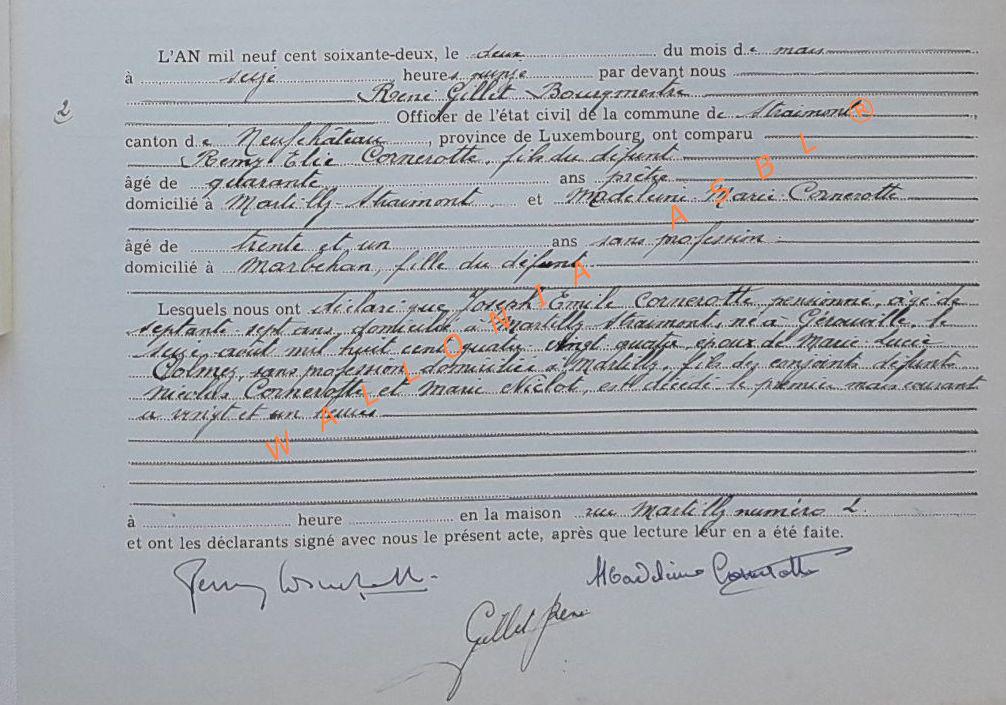 L'AN mil neuf cent soixante-deux, le deux du mois de mars
à seize heures par devant nous
René Gillet Bourgmestre
2
Officier de l'état civil de la commune de Straimont,
canton de Neufchâteau, province de Luxembourg, ont comparu
Remy Elie Cornerotte, fils du défunt
âgé de quarante ans prêtre
domicilié à Martilly-Straimont et Madeleine Marie Cornerotte
âgé de trente et un ans sans profession
domicilié à Marbehan, fille du défunt
Lesquels nous ont déclaré que Joseph Emile Cornerotte pensionné, âgé de
septante sept ans, domicilié à Martilly Straimont, né à Gérouville, le
seize août mil huit cent quatre vingt quatre époux de Marie Lucie
Colmez, sans profession domiciliée à Martilly, fils des conjoints défunts
Nicolas Cornerotte et Marie Niclot, est décédé le premier mars courant
à vingt et un heures
à heure en la maison rue Martilly numéro 2.
et ont les déclarants signé avec nous le présent acte, après que lecture leur en a été faite.
Madeleine Cornerotte
Gillet René
WALLONIA ASBL®